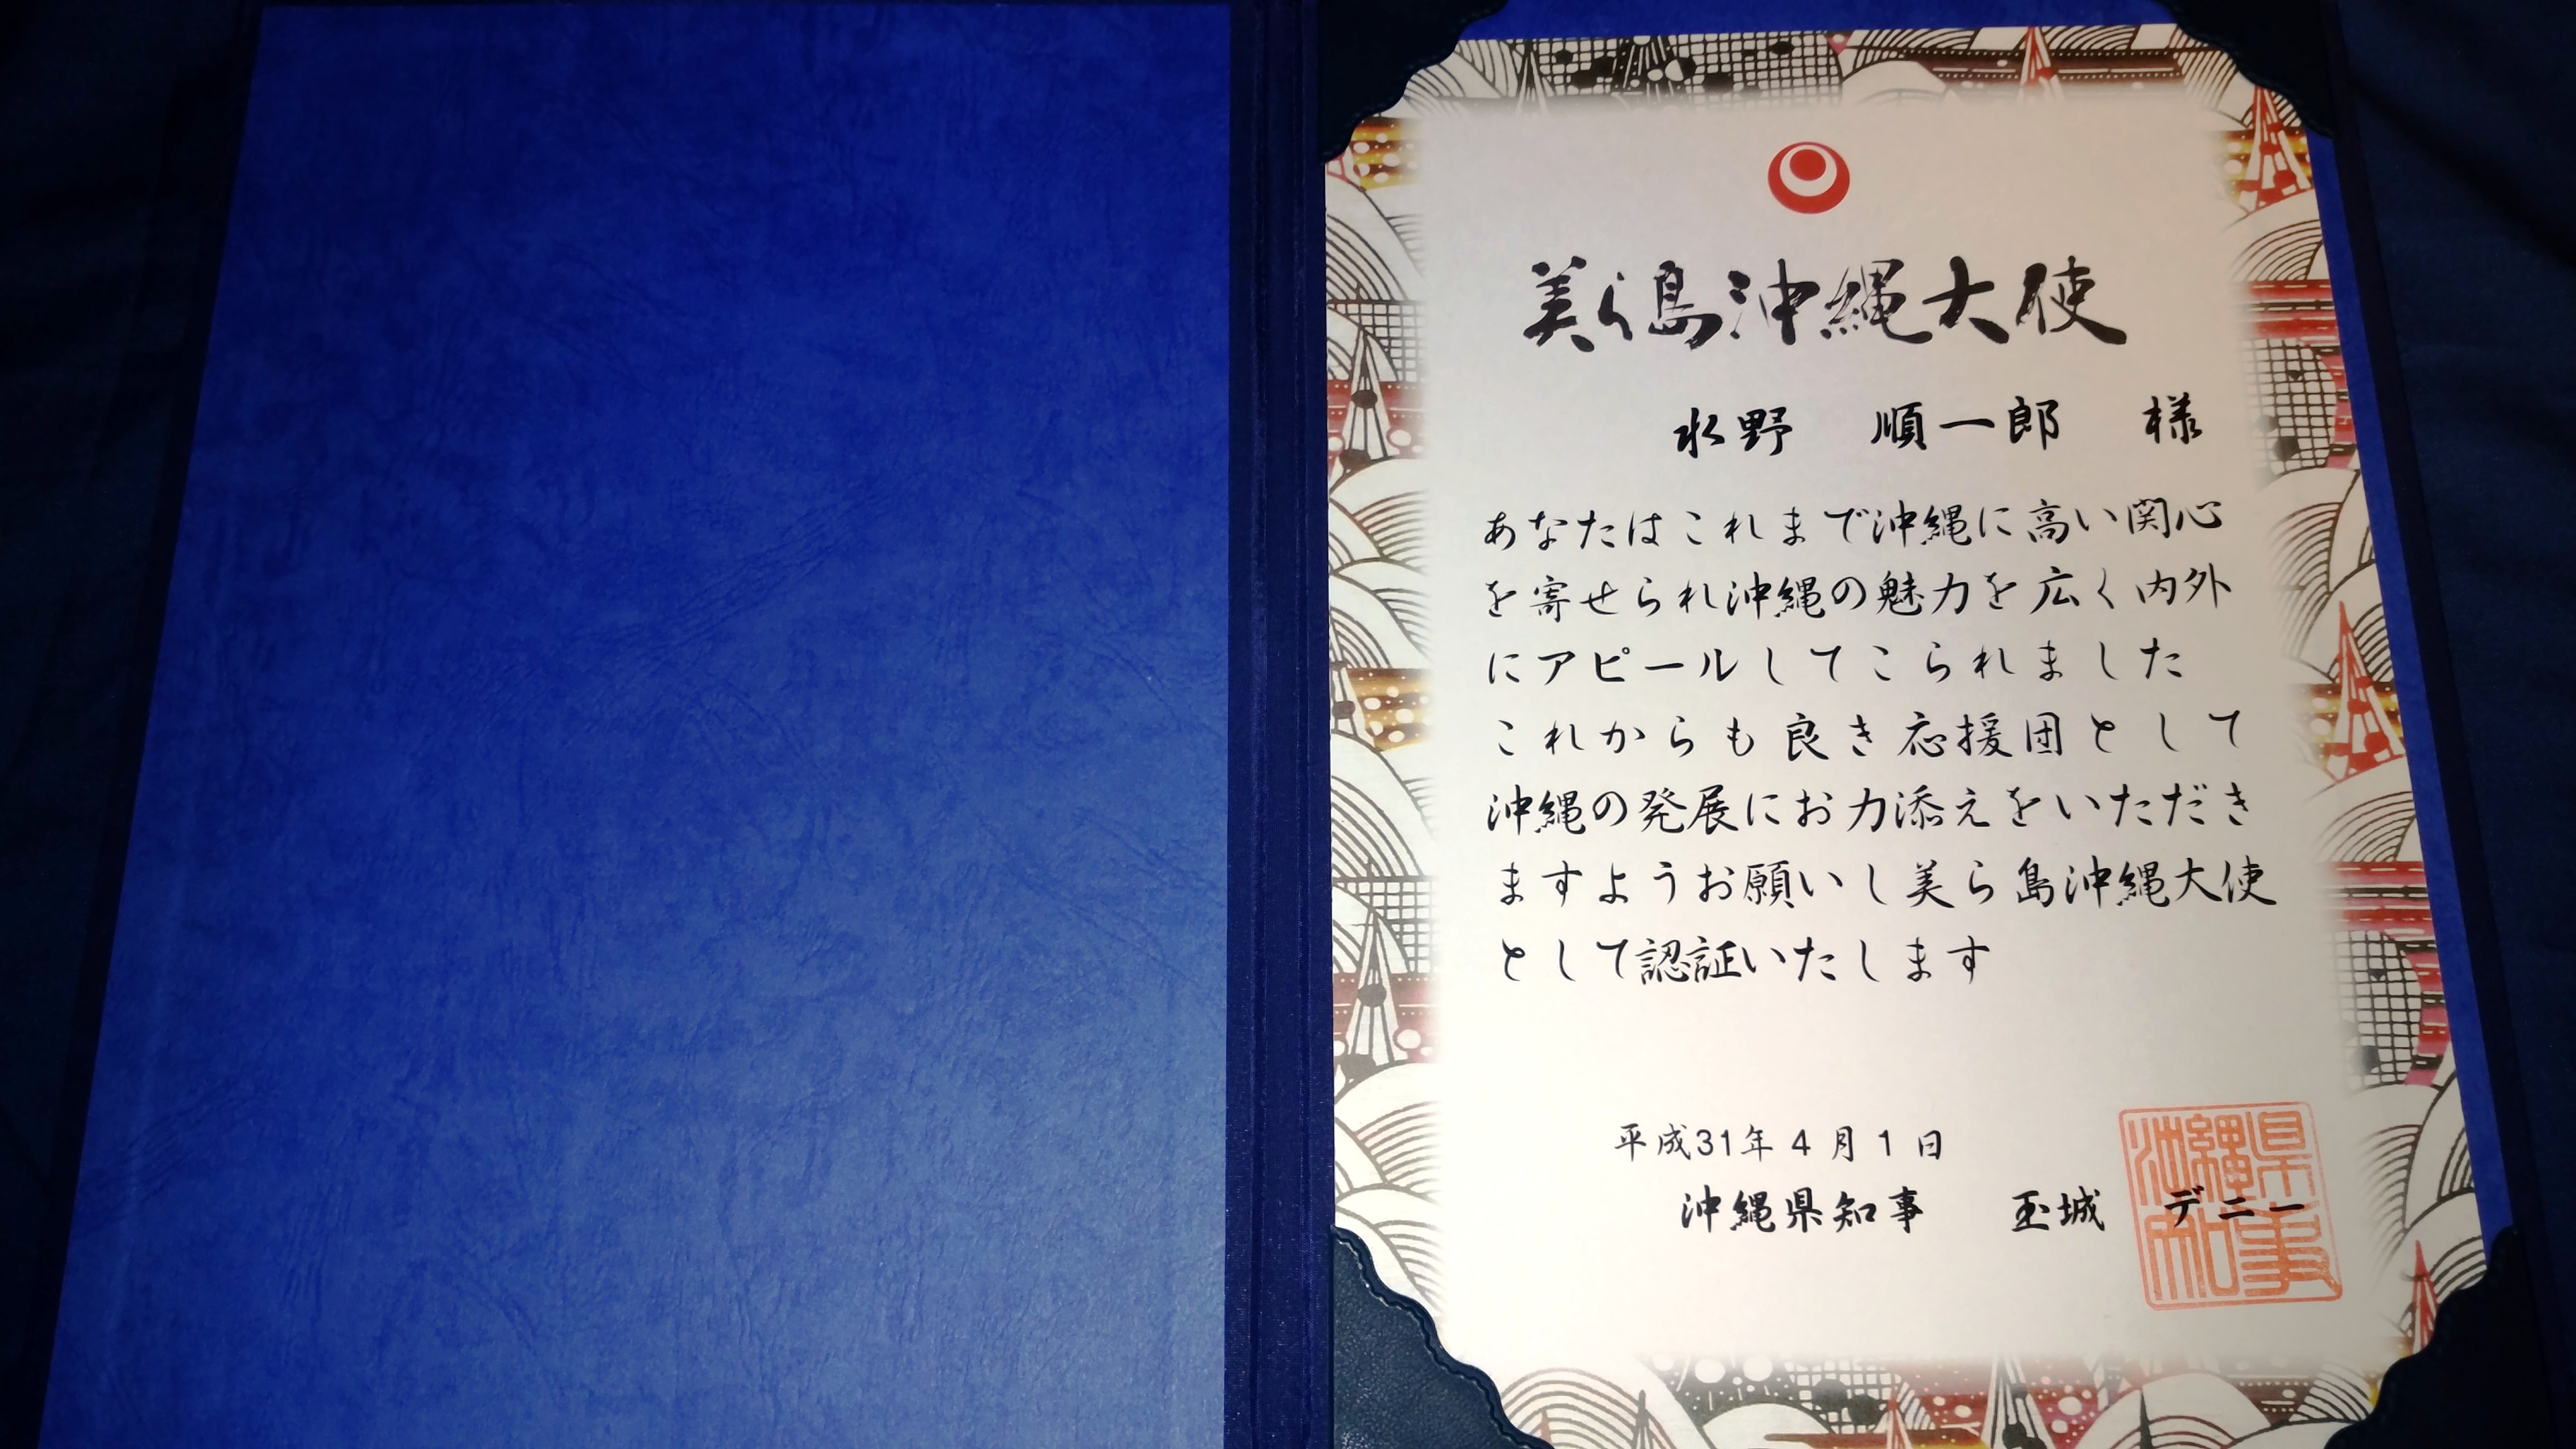 美ら島沖縄大使
水野 順一郎 様
あなたはこれまで沖縄に高い関心
を寄せられ沖縄の魅力を広く内外
にアピールしてこられました
これからも良き応援団として
沖縄の発展にお力添えをいただき
ますようお願いし美ら島沖縄大使
として認証いたします
平成31年4月1日
沖縄県知事 玉城 デニー
沖縄県
知事